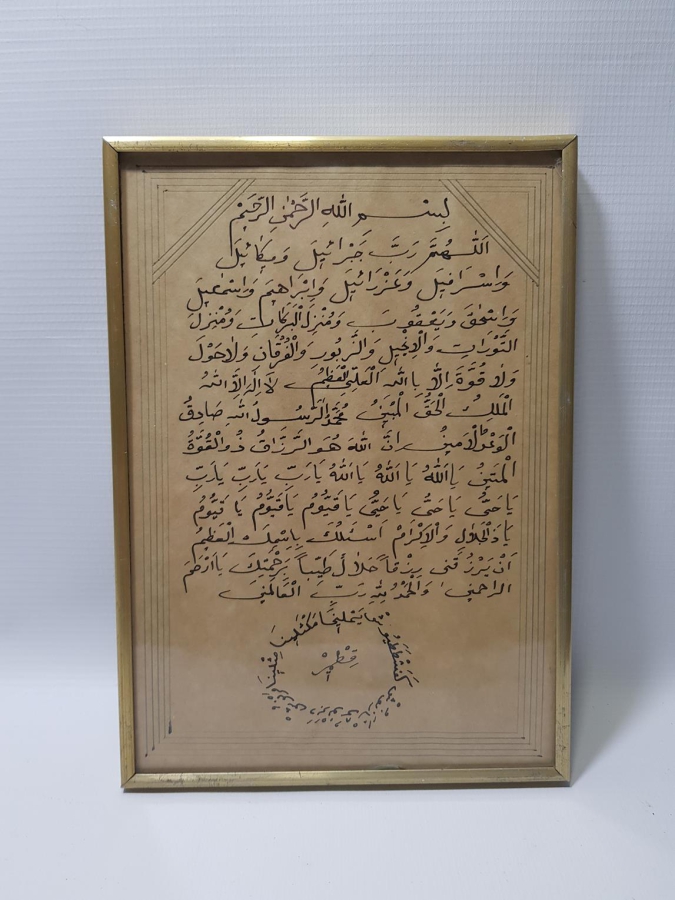 بِسْمِ اللهِ الرَّحْمٰنِ الرَّحِيْمِ
اَللّٰهُمَّ رَبَّ جَبْرَائِيلَ وَمِيكَائِيلَ
وَاِسْرَافِيلَ وَعَزْرَائِيلَ وَاِبْرَاهِيمَ وَاِسْمٰعِيلَ
وَاِسْحٰقَ وَيَعْقُوبَ وَمُنْزِلَ الْبَرَكَاتِ وَمُنْزِلَ
التَّوْرَاتِ وَالْاِنْجِيلِ وَالزَّبُورِ وَالْفُرْقَانِ وَلَا حَوْلَ
وَلَا قُوَّةَ اِلَّا بِاللهِ الْعَلِيِّ الْعَظِيمِ لَا اِلٰهَ اِلَّا اللهُ
الْمَلِكُ الْحَقُّ الْمُبِينُ مُحَمَّدٌ الرَّسُولُ اللهِ صَادِقُ
الْوَعْدِ الْاَمِينُ اِنَّ اللهَ هُوَ الرَّزَّاقُ ذُو الْقُوَّةُ
الْمَتِينُ يَا اَللهُ يَا اَللهُ يَا اَللهُ يَارَبِّ يَارَبِّ يَارَبِّ
يَا حَىُّ يَا حَىُّ يَا حَىُّ يَا قَيُّومُ يَا قَيُّومُ يَا قَيُّومُ
يَا ذَالْجَلَالِ وَالْاِكْرَامْ اَسْئَلُكَ بِاِسْمِكَ الْعَظِيمُ
اَنْ يَرْزُقَنِى رِزْقاً حَلَالً طَيِّباً بِرَحْمَتِكَ يَا اَرْحَمَ
الرَّاحِمِينَ وَالْحَمْدُ لِلّٰهِ رَبِّ الْعَالَمِينَ
يَمْلِيخَا مَكْثَلِينَا مِثْلِينَا
كَفَشْطَطَيُوشْ
قِطْمِيرْ